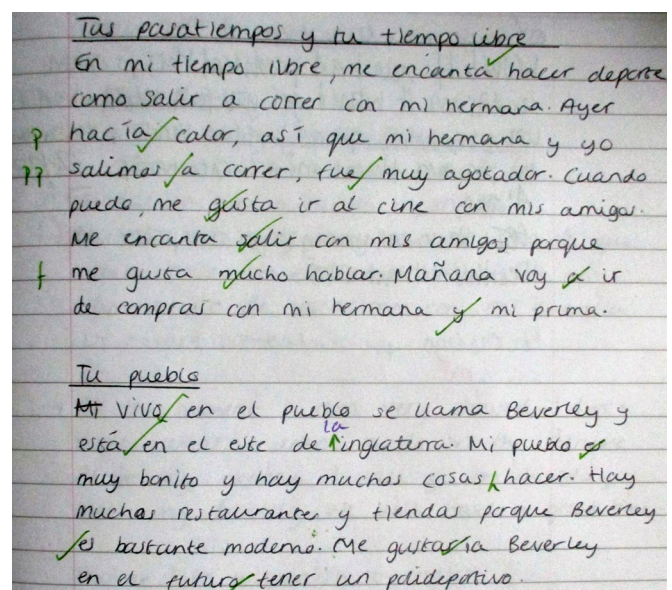 Tus pasatiempos y tu tiempo libre
En mi tiempo libre, me encanta hacer deporte
como salir a correr con mi hermana. Ayer
p hacía calor, así que mi hermana y yo
pp salimos a correr, fue muy agotador. Cuando
puedo, me gusta ir al cine con mis amigos.
Me encanta salir con mis amigos porque
f me gusta mucho hablar. Mañana voy a ir
de compras con mi hermana y mi prima.
Tu pueblo
Mi Vivo en el pueblo se llama Beverley y
la
está en el este de inglaterra. Mi pueblo es
muy bonito y hay muchos cosas hacer. Hay
muchos restaurante y tiendas porque Beverley
es bastante moderno. Me gustaría Beverley
en el futuro tener un polideportivo.